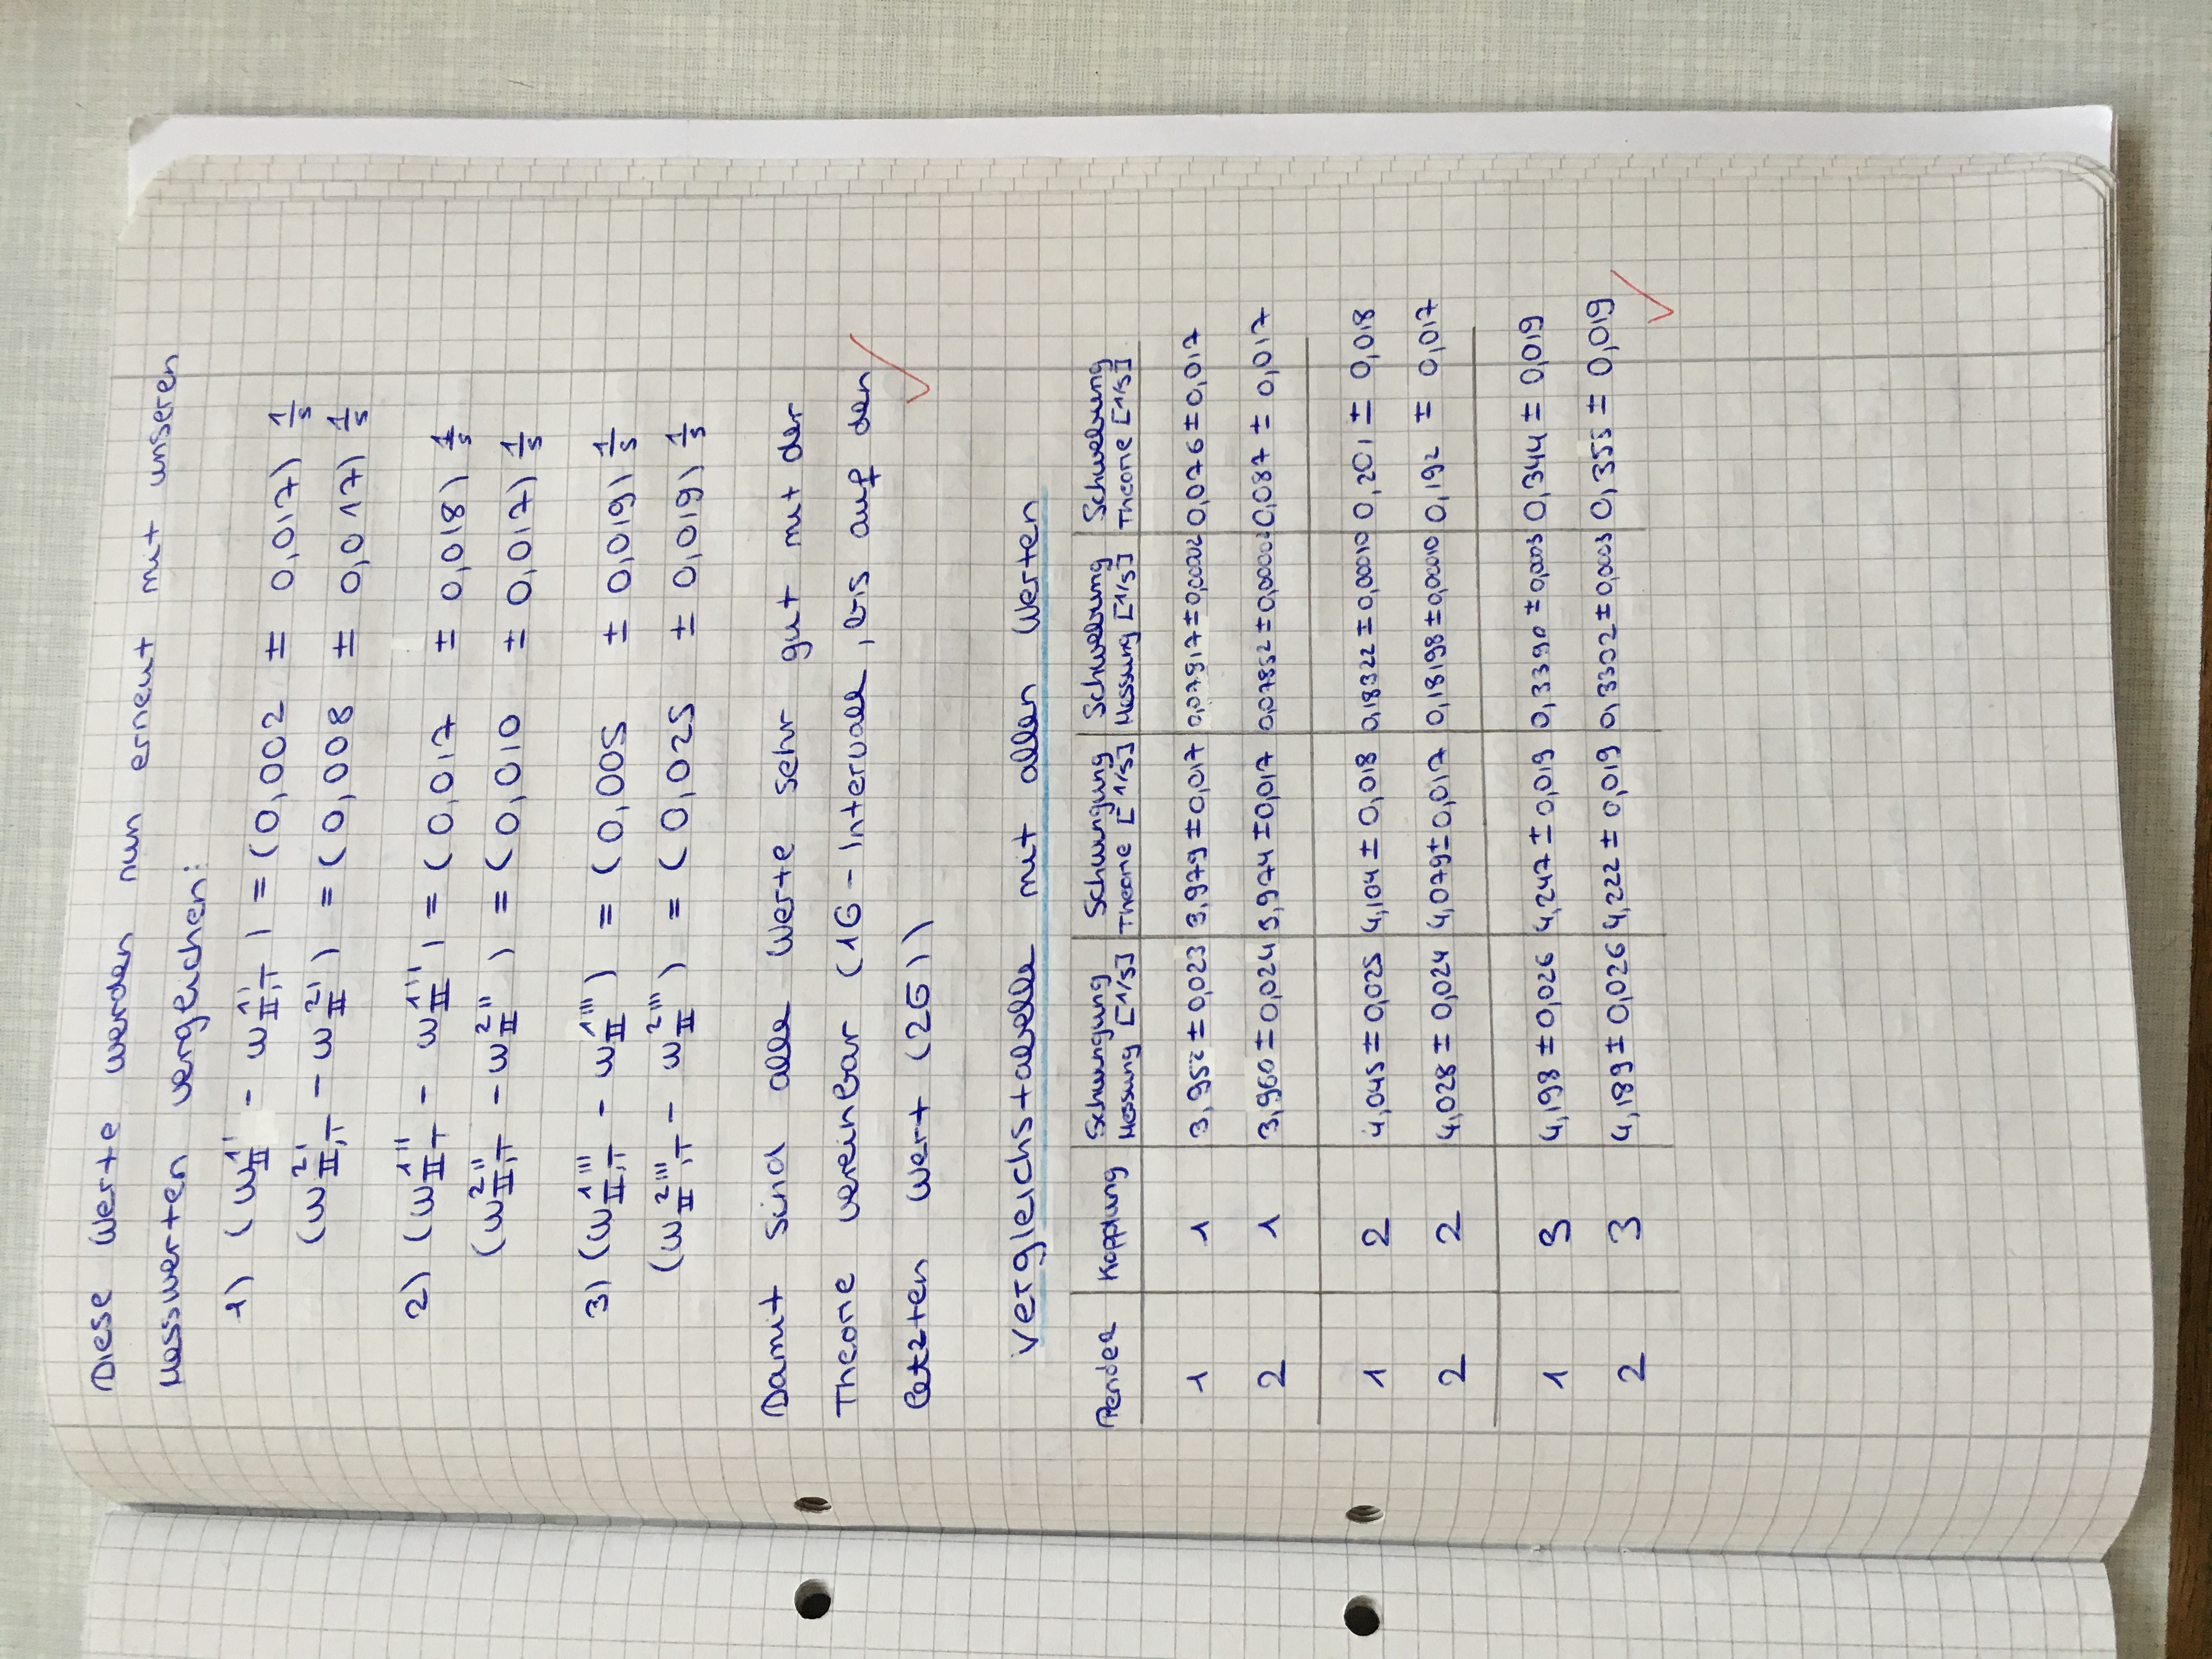 Diese Werte werden nun erneut mit unseren
Messwerten vergleichen:
1) (ω_II^1' - ω_II,T^1') = (0,002 ± 0,017) 1/s
(ω_II,T^2' - ω_II^2') = (0,008 ± 0,017) 1/s
2) (ω_II,T^1'' - ω_II^1'') = (0,017 ± 0,018) 1/s
(ω_II,T^2'' - ω_II^2'') = (0,010 ± 0,017) 1/s
3) (ω_II,T^1''' - ω_II^1''') = (0,005 ± 0,019) 1/s
(ω_II,T^2''' - ω_II^2''') = (0,025 ± 0,019) 1/s
Damit sind alle Werte sehr gut mit der
Theorie vereinbar (1σ - Intervall, bis auf den
letzten Wert (2σ))
Vergleichstabelle mit allen Werten
Pendel Kopplung Schwingung Messung [1/s] Schwingung Theorie [1/s] Schwebung Messung [1/s] Schwebung Theorie [1/s]
1 1 3,952 ± 0,023 3,979 ± 0,017 0,07817 ± 0,00002 0,076 ± 0,017
2 1 3,960 ± 0,024 3,974 ± 0,017 0,07852 ± 0,00002 0,087 ± 0,017
1 2 4,045 ± 0,025 4,104 ± 0,018 0,18322 ± 0,00010 0,201 ± 0,018
2 2 4,028 ± 0,024 4,079 ± 0,017 0,18198 ± 0,00010 0,192 ± 0,017
1 3 4,198 ± 0,026 4,247 ± 0,019 0,3390 ± 0,0003 0,344 ± 0,019
2 3 4,189 ± 0,026 4,222 ± 0,019 0,3302 ± 0,0003 0,355 ± 0,019